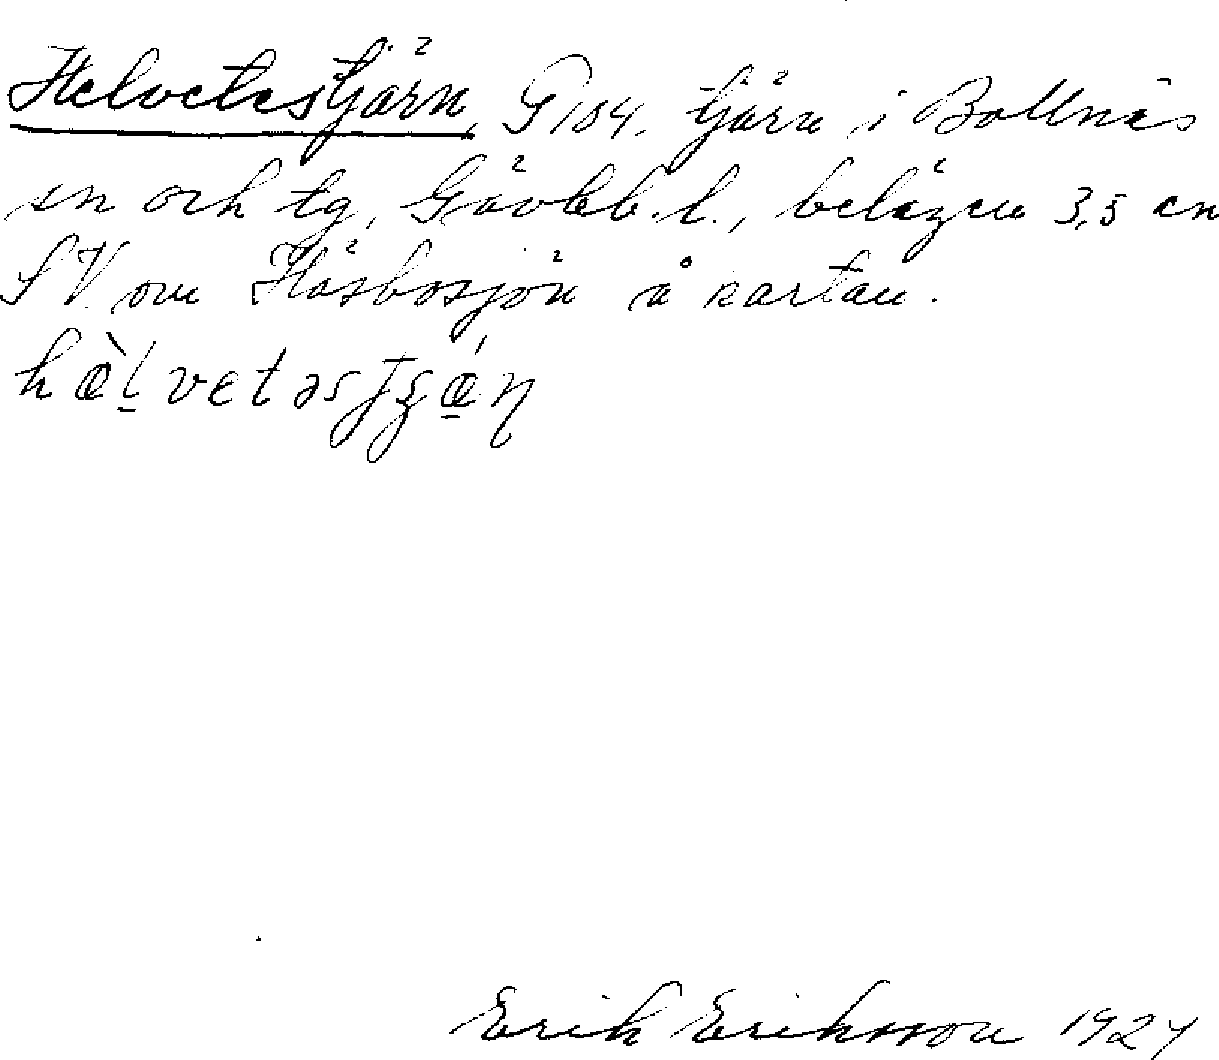 Helvetestjärn, G 104. tjärn i Bollnäs
sn och tg, Gävleb. l., belägen 3,5 cm
SV om Häsbosjön å kartan.
Erik Eriksson 1927